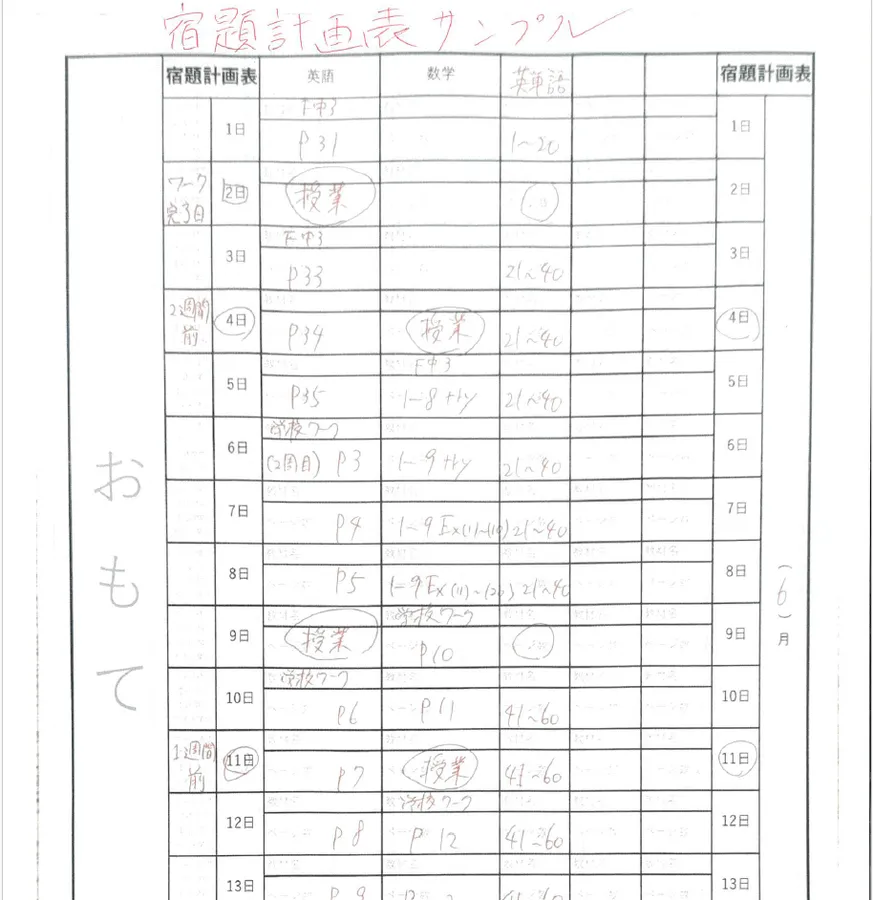 宿題計画表サンプル
宿題計画表 英語 数学 英単語 宿題計画表
F中3
1日 P31 1~20 1日
ワーク完了日 2日 授業 2日
F中3
3日 P33 21~40 3日
2週間前 4日 P34 授業 21~40 4日
F中3
5日 P35 1-8 +ry 21~40 5日
学校ワーク
6日 (2周目) P3 1-9 +ry 21~40 6日
7日 P4 1-9 Ex(1)~(10) 21~40 7日
8日 P5 1-9 Ex(11)~(20) 21~40 8日
学校ワーク
9日 授業 P10 9日
学校ワーク
10日 P6 P11 41~60 10日
1週間前 11日 P7 授業 41~60 11日
学校ワーク
12日 P8 P12 41~60 12日
13日 P9 13日
おもて
(6)月